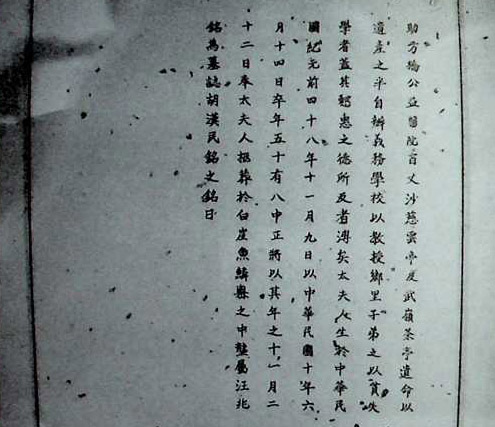 助方橋公益醫院首文沙慈雲亭及武嶺茶亭遺命以
遺產之半自辦義務學校以教授鄉里子弟之以貧失
學者蓋其慈惠之德所及者溥矣太夫人生於中華民
國紀元前四十八年十一月九日以中華民國十年六
月十四日卒年五十有八中正將以其年之十一月二
十二日奉太夫人柩葬於白崖魚鱗嶴之中壟屬汪兆
銘為墓誌胡漢民銘之銘曰